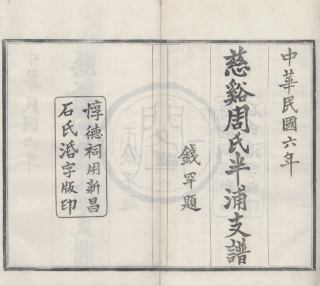 中華民國六年
慈谿周氏半浦支譜
錢罕題
惇德祠用新昌
石氏活字版印